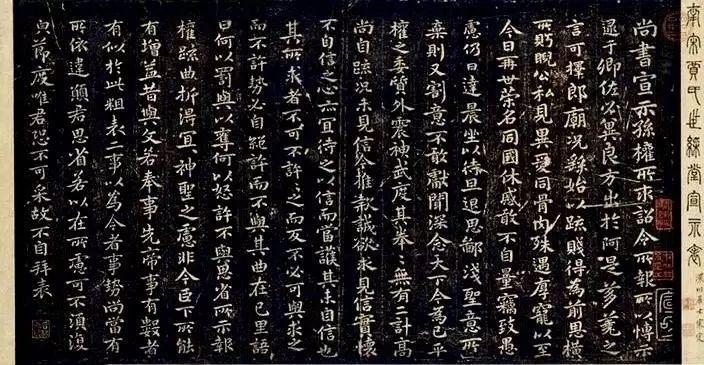 南宋賈氏
堂宣示表
尚書宣示孫權所求詔令所報所以博示
逮于卿佐必冀良方出於阿是芻蕘之
言可擇郎廟況繇始以疏賤得為前恩橫
所眄睨公私見異愛同骨肉殊遇厚寵以至
今日再世榮名同國休慼敢不自量竊致愚
慮仍日達晨坐以待旦退思鄙淺聖意所
棄則又割意不敢獻聞深念天下今為已平
權之委質外震神武度其拳〻無有二計高
尚自疏況未見信今推款誠欲求見信實懷
不自信之心亦宜待之以信而當護其未自信也
其所求者不可不許〻之而反不必可與求之
而不許勢必自絕許而不與其曲在己里語
曰何以罰與以奪何以怒許不與思省所示報
權疏曲折得宜〻神聖之慮非今臣下所能
有增益昔與文若奉事先帝事有數者
有似於此粗表二事以為今者事勢尚當有
所依違願君思省若以在所慮可不須復
與節度唯君恐不可采故不自拜表